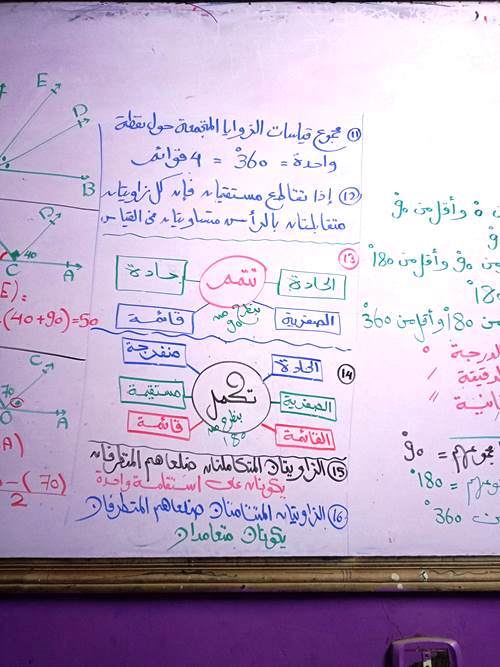 (11) مجموع قياسات الزوايا المتجمعة حول نقطة
واحدة = 360° = 4 قوائم
(12) إذا تقاطع مستقيمان فإن كل زاويتان
متقابلتان بالرأس متساويتان فى القياس
(13)
الحادة تتمم حادة
الصفرية بنطرح من 90° قائمة
(14)
الحادة تكمل منفرجة
الصفرية مستقيمة
القائمة بنطرح من 180° قائمة
(15) الزاويتان المتكاملتان ضلعاهم المتطرفان
يكونان على استقامة واحدة
(16) الزاويتان المتتامتان ضلعاهم المتطرفان
يكونان متعامدان
وأقل من 90°
90° وأقل من 180°
180°
من 180° وأقل من 360°
الدرجة °
الدقيقة /
//
= 90°
= 180°
360°
E
D
B
D
40
C
A
E):
(40+90)=50
C
70
O
A
A)
(70)
2